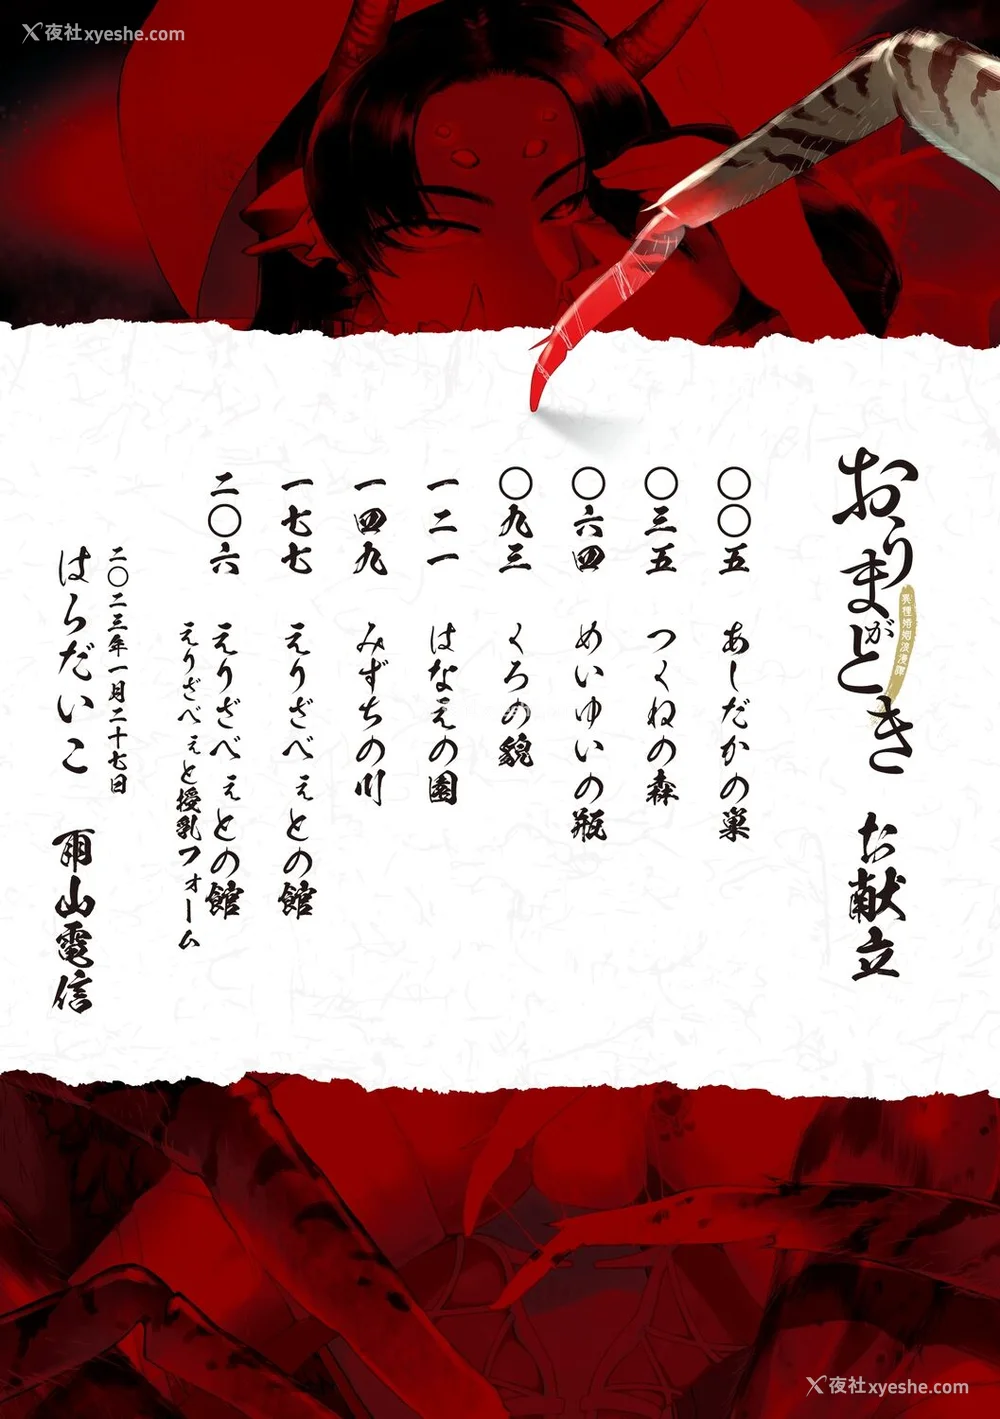 夜社xyeshe.com
おりまがとき お献立
異種婚姻浪漫譚
〇〇五 あしだかの巣
〇三五 つくねの森
〇六四 めいゆいの瓶
〇九三 くろの貌
一二一 はなえの園
一四九 みずちの川
一七七 えりざべぇとの館
二〇六 えりざべぇとの館
えりざべぇと授乳フォーム
二〇二三年一月二十七日
はらだいこ 雨山電信
夜社xyeshe.com